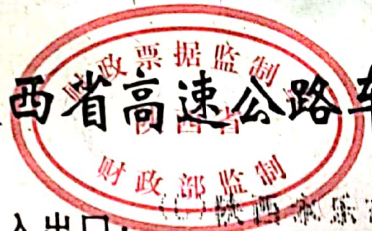 财政票据监制
西省高速公路车
陕西省
财政部监制
入出口：